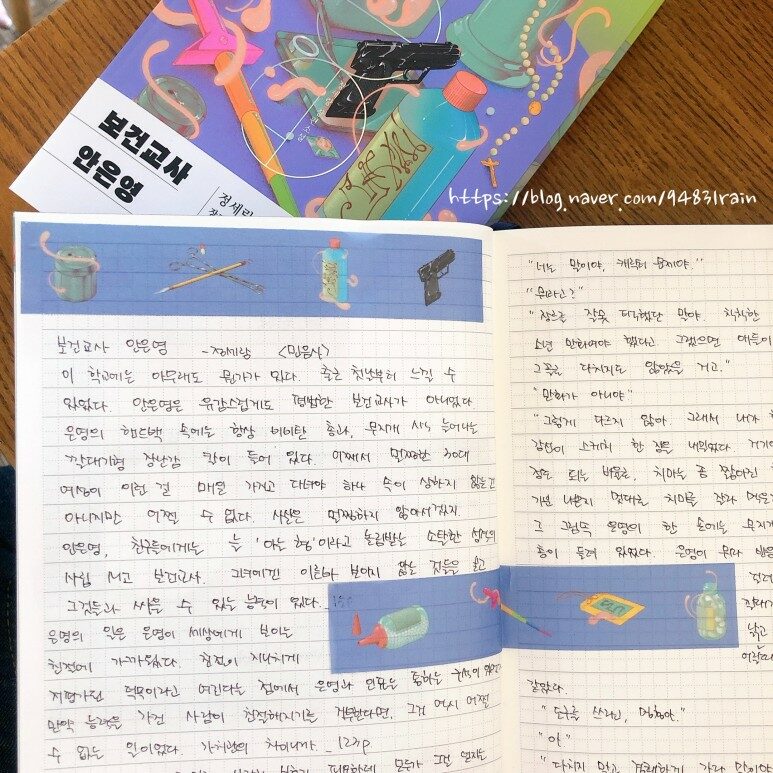 보건교사
안은영
정세랑
https://blog.naver.com/94831rain
보건교사 안은영 -정세랑 <민음사>
이 학교에는 아무래도 뭔가가 있다. 출근 첫날부터 느낄 수
있었다. 안은영은 유감스럽게도 평범한 보건교사가 아니었다
은영의 핸드백 속에는 항상 비비탄 총과, 무지개 색 늘어나는
깔대기형 장난감 칼이 들어 있다. 어째서 멀쩡한 30대
여성이 이런 걸 매일 가지고 다녀야 하나 속이 상하지 않는건
아니지만 어쩔 수 없다. 사실은 멀쩡하지 않아서겠지
안은영, 친구들에게는 늘 '아는 형'이라고 놀림받는 소탈한 성격의
사립 M고 보건교사. 그녀에겐 이른바 보이지 않는 것들을 보고
그것들과 싸울 수 있는 능력이 있다..
은영의 일은 은영이 세상에게 보이는
친절에 가까웠다. 친절이 지나치게
저평가된 덕목이라고 여긴다는 점에서 은영과 인표는 통하는 구석이 있었다
만약 능력을 가진 사람이 친절해지기를 거부한다면, 그것 역시 어쩔
수 없는 일이었다. 가치관의 차이니까 _123p
"너는 말이야, 캐릭터 문제야."
"뭐라고?"
"장르를 잘못 택했단 말야. 칙칙한
소년 만화여야 했다고 그랬으면 애들이
그쪽을 다치지도 않았을 거고."
"만화가 아니야"
"그렇게 다르지 않아. 그래서 내가
강선이 스케치 한 장을 내밀었다. 거기엔
정도 되는 비율로, 치마는 좀 짧아진
기분 나쁜지 멋대로 치마를 잘라 먹은
그 그림 속 은영이 한 손에는 무지개
총이 들려 있었다. 은영이 뭔가
같았다.
"도구를 쓰라고, 멍청아."
"아"
"다치지 말고 경쾌하게 가란 말이야